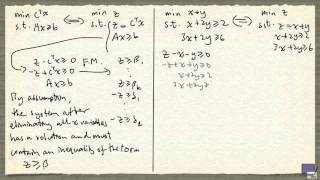 min cᵀx
s.t. Ax≥b
⟺
min z
s.t. z = cᵀx
Ax≥b
z-cᵀx≥0
-z+cᵀx≥0
Ax≥b
F.M.
z≥β₁
⋮
z≥βₖ
-z≥δ₁
⋮
By assumption,
the system after
eliminating all x variables
has a solution and must
contain an inequality of the form
z≥β
min x+y
s.t. x+2y≥2
3x+2y≥6
⟺
min z
s.t. z=x+y
x+2y≥2
3x+2y≥6
z-x-y≥0
-z+x+y≥0
x+2y≥2
3x+2y≥